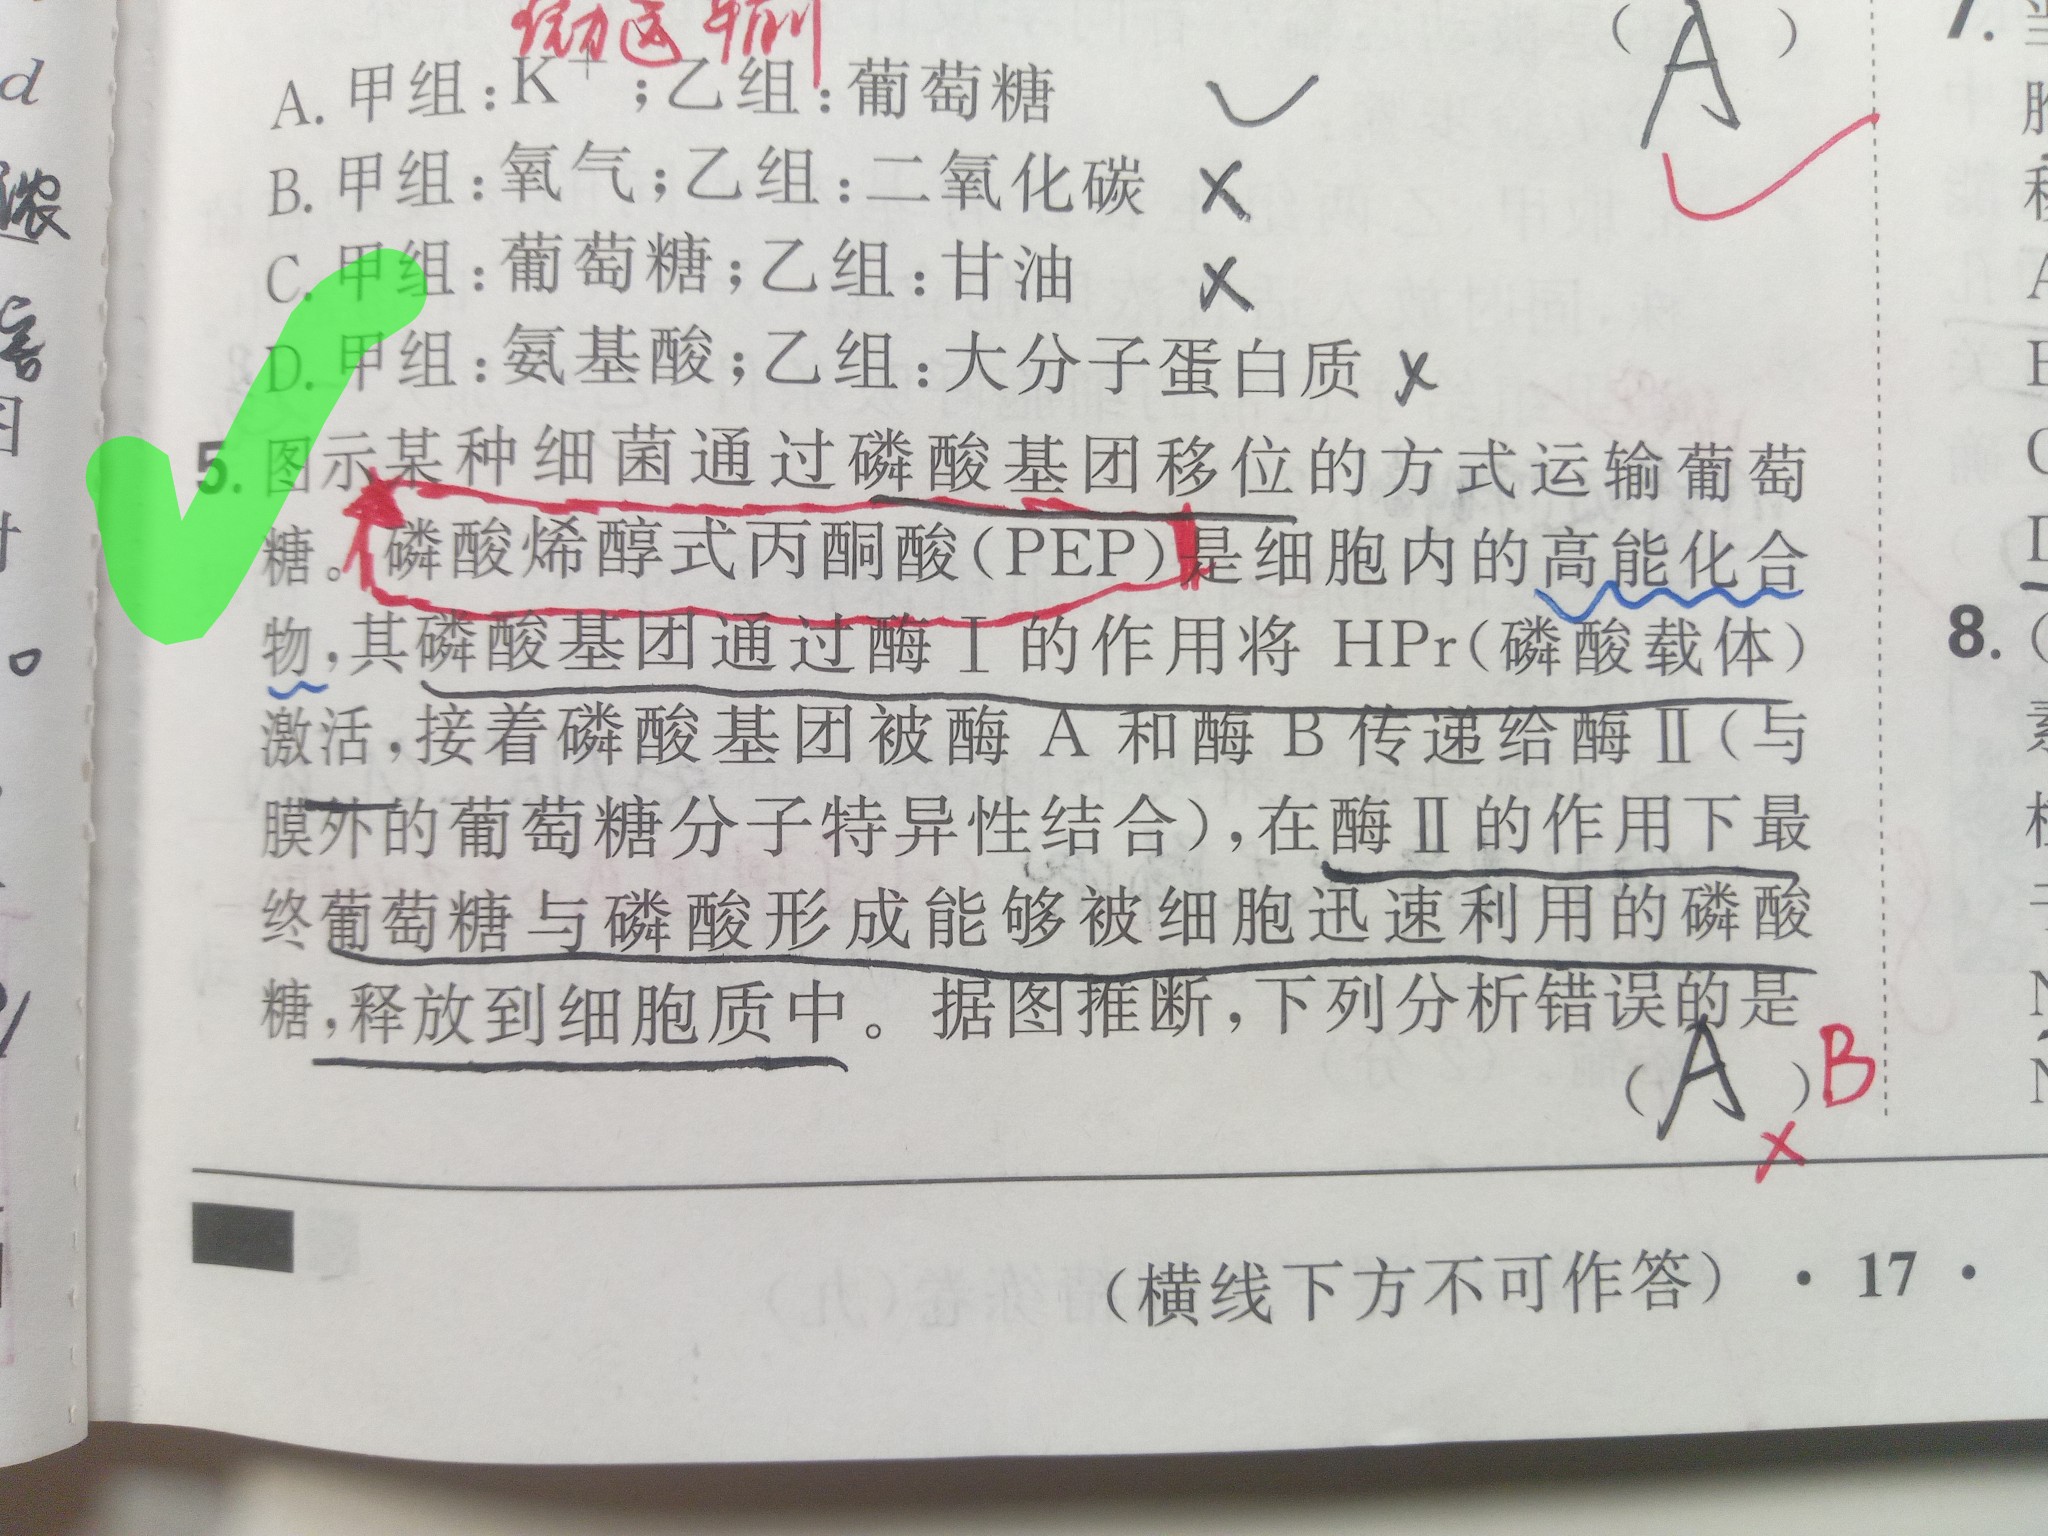 A. 甲组:K⁺;乙组:葡萄糖
B. 甲组:氧气;乙组:二氧化碳
C. 甲组:葡萄糖;乙组:甘油
D. 甲组:氨基酸;乙组:大分子蛋白质
(A)
5. 图示某种细菌通过磷酸基团移位的方式运输葡萄
糖。磷酸烯醇式丙酮酸(PEP)是细胞内的高能化合
物,其磷酸基团通过酶Ⅰ的作用将 HPr(磷酸载体)
激活,接着磷酸基团被酶 A 和酶 B 传递给酶Ⅱ(与
膜外的葡萄糖分子特异性结合),在酶Ⅱ的作用下最
终葡萄糖与磷酸形成能够被细胞迅速利用的磷酸
糖,释放到细胞质中。据图推断,下列分析错误的是
(A) B
(横线下方不可作答) · 17 ·
d
浓
7.
8.